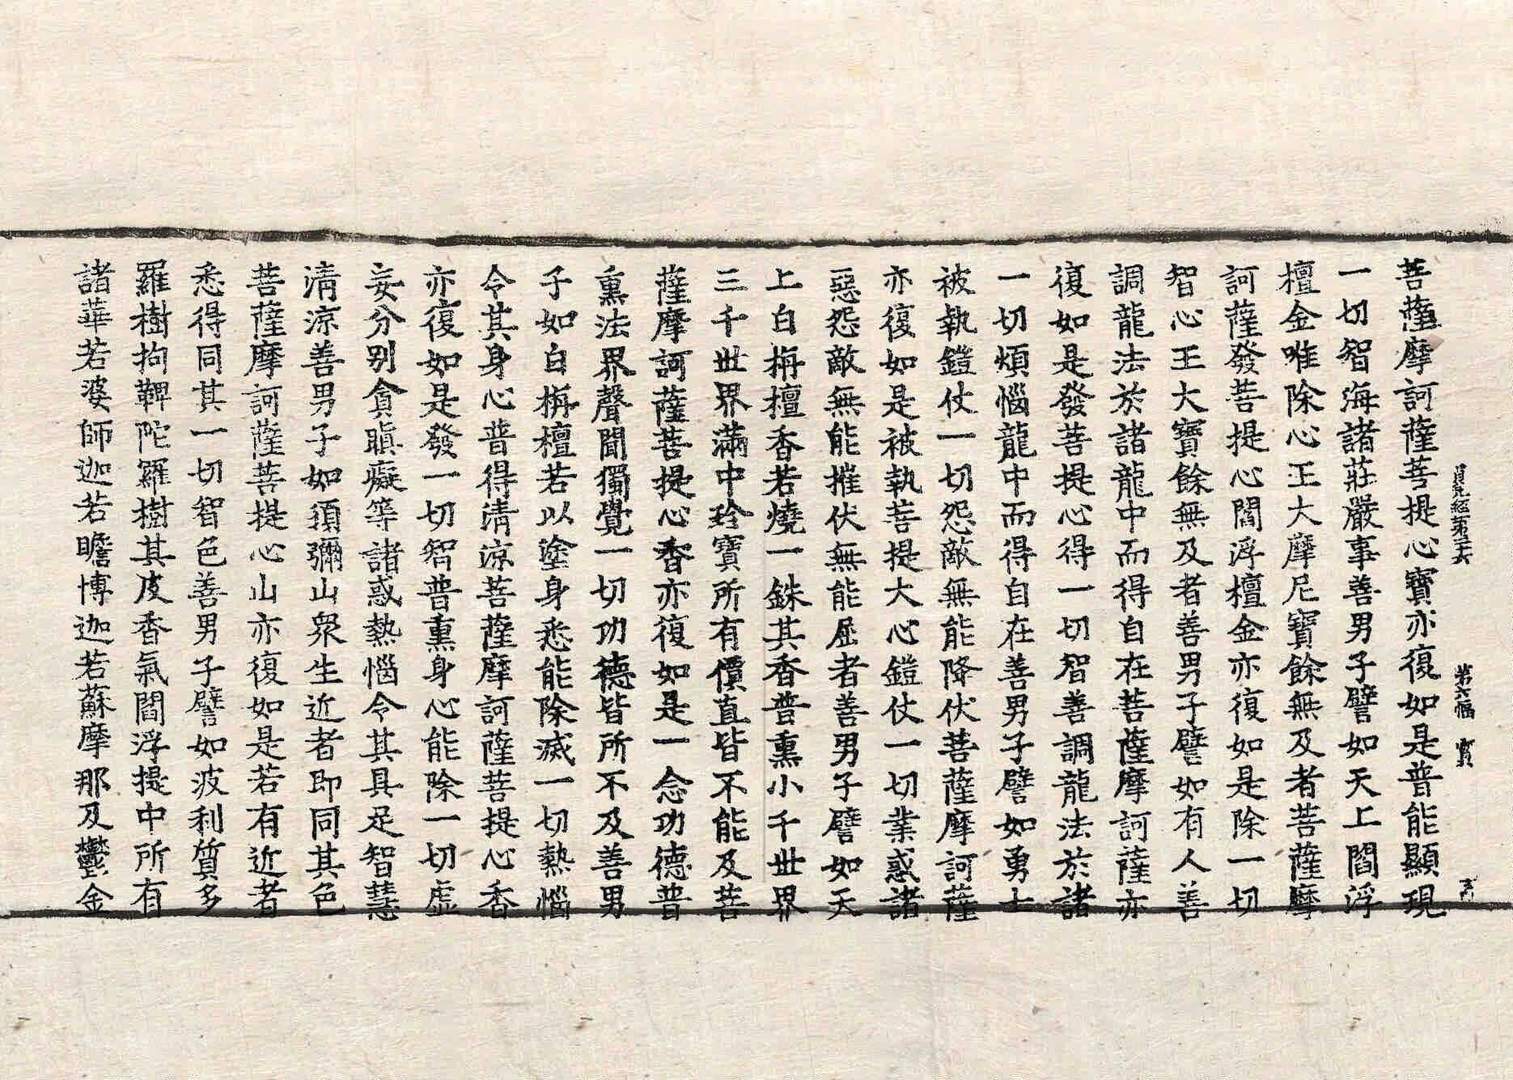 菩薩摩訶薩菩提心寶亦復如是普能顯現
一切智海諸莊嚴事善男子譬如天上閻浮
檀金唯除心王大摩尼寶餘無及者菩薩摩
訶薩發菩提心閻浮檀金亦復如是除一切
智心王大寶餘無及者善男子譬如有人善
調龍法於諸龍中而得自在菩薩摩訶薩亦
復如是發菩提心得一切智善調龍法於諸
一切煩惱龍中而得自在善男子譬如勇士
被執鎧仗一切怨敵無能降伏菩薩摩訶薩
亦復如是被執菩提大心鎧仗一切業惑諸
惡怨敵無能摧伏無能屈者善男子譬如天
上白栴檀香若燒一銖其香普熏小千世界
三千世界滿中珍寶所有價直皆不能及菩
薩摩訶薩菩提心香亦復如是一念功德普
熏法界聲聞獨覺一切功德皆所不及善男
子如白栴檀若以塗身悉能除滅一切熱惱
令其身心普得清涼菩薩摩訶薩菩提心香
亦復如是發一切智普熏身心能除一切虛
妄分別貪瞋癡等諸惑熱惱令其具足智慧
清涼善男子如須彌山眾生近者即同其色
菩薩摩訶薩菩提心山亦復如是若有近者
悉得同其一切智色善男子譬如波利質多
羅樹拘鞞陀羅樹其皮香氣閻浮提中所有
諸華若婆師迦若瞻博迦若蘇摩那及鬱金